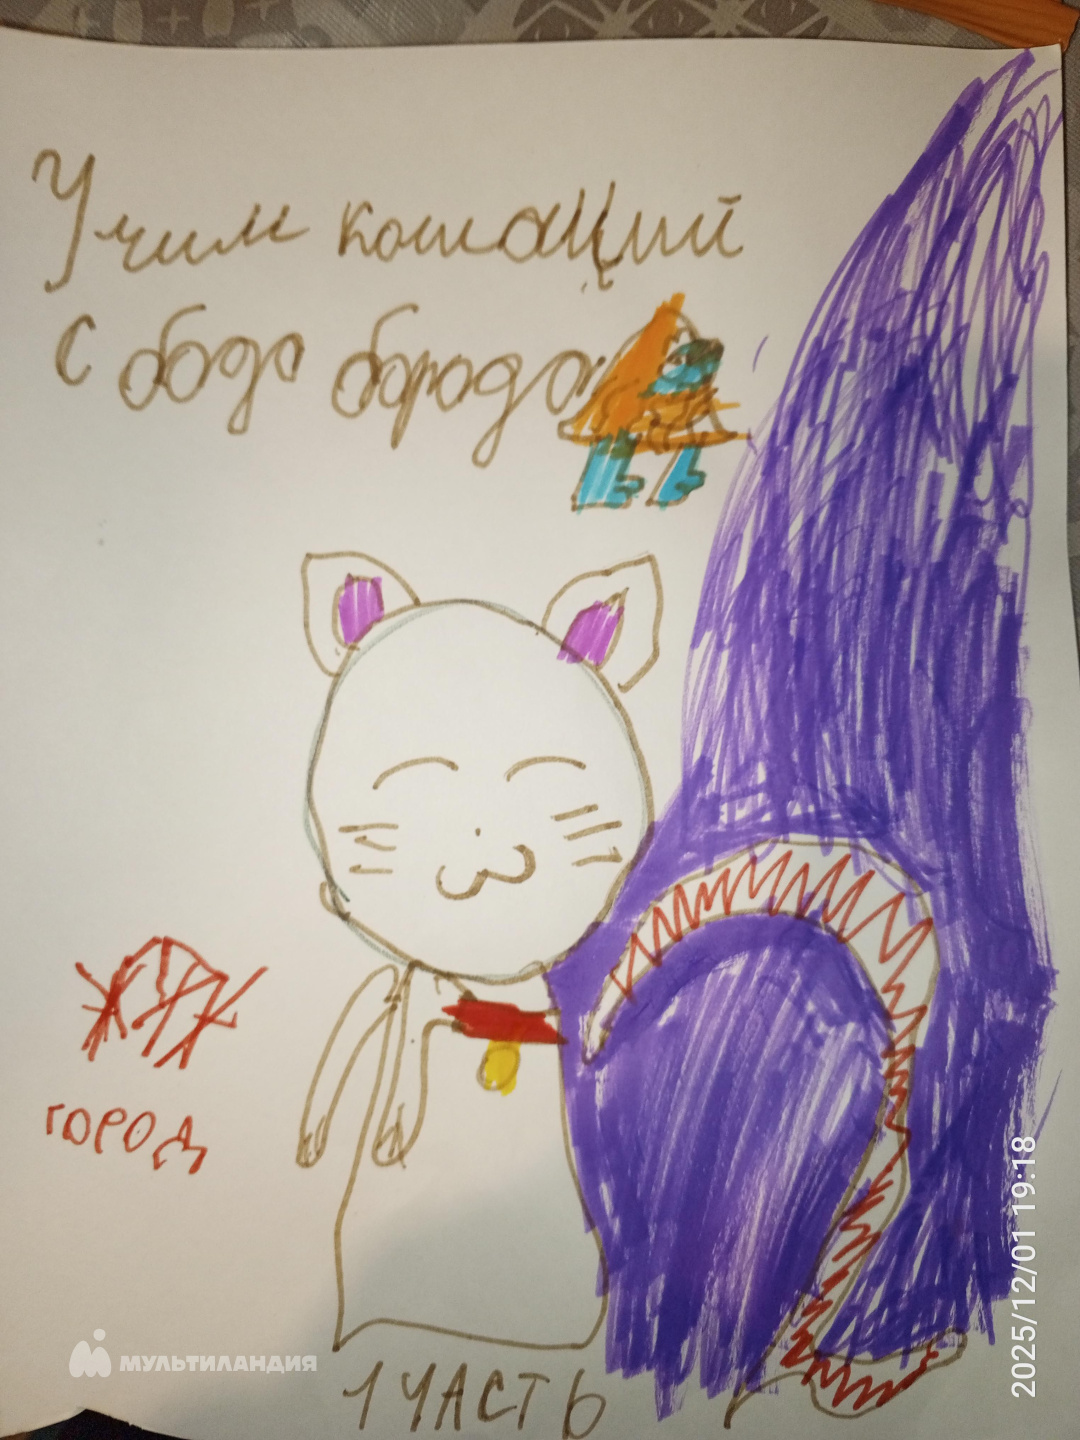 Учим кошаЩий
с бобо борода
ГОРОД
1 ЧАСТЬ
МУЛЬТИЛАНДИЯ
2025/12/01 19:18